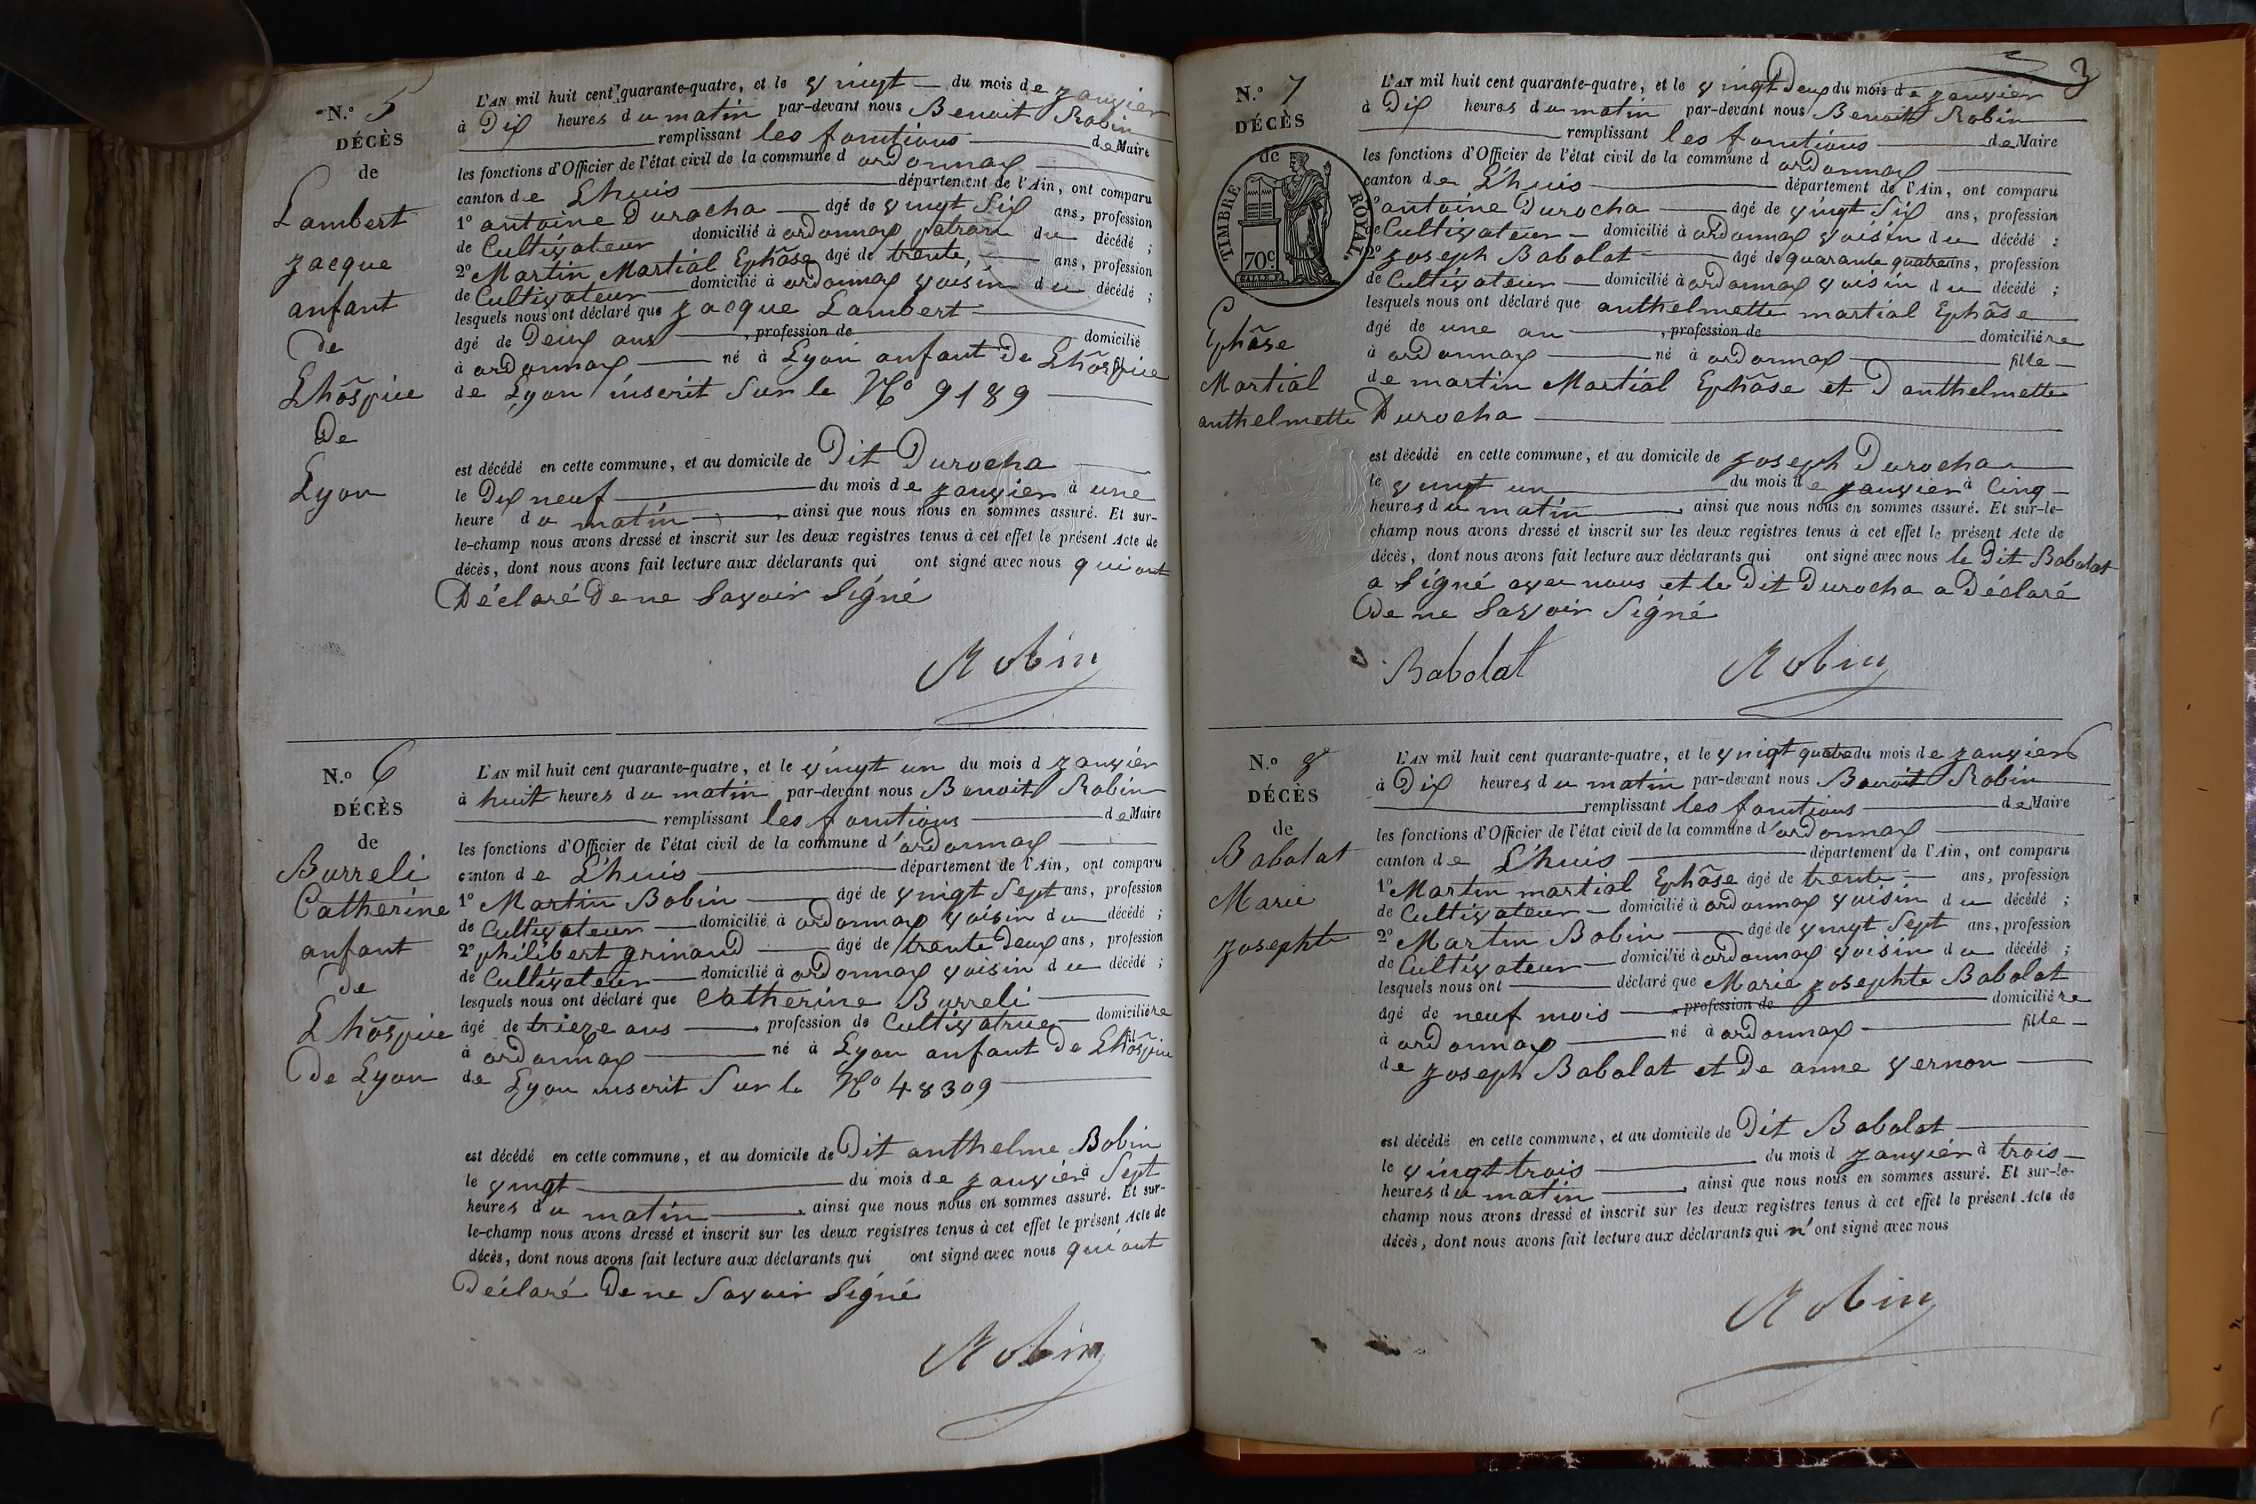 N.º 5
DÉCÈS
de
Lambert
Jacque
anfant
de
Lhôspice
de
Lyon
L'AN mil huit cent quarante-quatre, et le vingt du mois de Janvier
à Dix heures du matin par-devant nous Benoit Robin
remplissant les fonctions de Maire
les fonctions d'Officier de l'état civil de la commune d ordonnax
canton de Lhuis département de l'Ain, ont comparu
1º antoine Durocha âgé de vingt Six ans, profession
de Cultivateur domicilié à ordonnax patron du décédé ;
2º Martin Martial Ephâse âgé de trente, ans, profession
de Cultivateur domicilié à ordonnax voisin du décédé ;
lesquels nous ont déclaré que Jacque Lambert
âgé de Deux ans , profession de domicilié
à ordonnax né à Lyon anfant de Lhôspice
de Lyon inscrit Sur le Nº 9189
est décédé en cette commune, et au domicile de Dit Durocha
le Dix neuf du mois de Janvier à une
heure du matin , ainsi que nous nous en sommes assuré. Et sur-
le-champ nous avons dressé et inscrit sur les deux registres tenus à cet effet le présent Acte de
décès, dont nous avons fait lecture aux déclarants qui ont signé avec nous qui ont
Déclaré De ne Savoir Signé
Robin
N.º 6
DÉCÈS
de
Burreli
Catherine
anfant
de
Lhôspice
de Lyon
L'AN mil huit cent quarante-quatre, et le vingt un du mois d Janvier
à huit heures du matin par-devant nous Benoit Robin
remplissant les fonctions de Maire
les fonctions d'Officier de l'état civil de la commune d'ordonnax
canton de Lhuis département de l'Ain, ont comparu
1º Martin Bobin âgé de vingt Sept ans, profession
de Cultivateur domicilié à ordonnax voisin du décédé ;
2º philibert grinand âgé de trente Deux ans, profession
de Cultivateur domicilié à ordonnax voisin du décédé ;
lesquels nous ont déclaré que Catherine Burreli
âgé de trieze ans , profession de Cultivatrice domiciliére
à ordonnax né à Lyon anfant De Lhôspice
de Lyon inscrit Sur le Nº 48309
est décédé en cette commune, et au domicile de Dit anthelme Bobin
le vingt du mois de Janvier à Sept
heures du matin , ainsi que nous nous en sommes assuré. Et sur-
le-champ nous avons dressé et inscrit sur les deux registres tenus à cet effet le présent Acte de
décès, dont nous avons fait lecture aux déclarants qui ont signé avec nous qui ont
Déclaré De ne Savoir Signé
Robin
3
N.º 7
DÉCÈS
de
TIMBRE ROYAL
70c
Ephâse
Martial
anthelmette
L'AN mil huit cent quarante-quatre, et le vingt Deux du mois de Janvier
à Dix heures du matin par-devant nous Benoit Robin
remplissant les fonctions de Maire
les fonctions d'Officier de l'état civil de la commune d ordonnax
canton de Lhuis département de l'Ain, ont comparu
1º antoine Durocha âgé de vingt Six ans, profession
de Cultivateur domicilié à ordonnax voisin du décédé ;
2º Joseph Babolat âgé de quarante quatre ans, profession
de Cultivateur domicilié à ordonnax voisin du décédé ;
lesquels nous ont déclaré que anthelmette martial Ephâse
âgé de une an , profession de domiciliére
à ordonnax né à ordonnax fille
de martin Martial Ephâse et D anthelmette
Durocha
est décédé en cette commune, et au domicile de Joseph Durocha
le vingt un du mois de Janvier à Cinq
heures du matin , ainsi que nous nous en sommes assuré. Et sur-le-
champ nous avons dressé et inscrit sur les deux registres tenus à cet effet le présent Acte de
décès, dont nous avons fait lecture aux déclarants qui ont signé avec nous le Dit Babolat
a Signé avec nous et le Dit Durocha a Déclaré
De ne Savoir Signé
Babolat Robin
N.º 8
DÉCÈS
de
Babolat
Marie
Josephte
L'AN mil huit cent quarante-quatre, et le vingt quatre du mois de Janvier
à Dix heures du matin par-devant nous Benoit Robin
remplissant les fonctions de Maire
les fonctions d'Officier de l'état civil de la commune d'ordonnax
canton de Lhuis département de l'Ain, ont comparu
1º Martin martial Ephâse âgé de trente ans, profession
de Cultivateur domicilié à ordonnax voisin du décédé ;
2º Martin Bobin âgé de vingt Sept ans, profession
de Cultivateur domicilié à ordonnax voisin du décédé ;
lesquels nous ont déclaré que Marie Josephte Babolat
âgé de neuf mois , profession de domiciliére
à ordonnax né à ordonnax fille
de Joseph Babolat et De anne vernon
est décédé en cette commune, et au domicile de Dit Babolat
le vingt trois du mois d Janvier à trois
heures du matin , ainsi que nous nous en sommes assuré. Et sur-le-
champ nous avons dressé et inscrit sur les deux registres tenus à cet effet le présent Acte de
décès, dont nous avons fait lecture aux déclarants qui n'ont signé avec nous
Robin